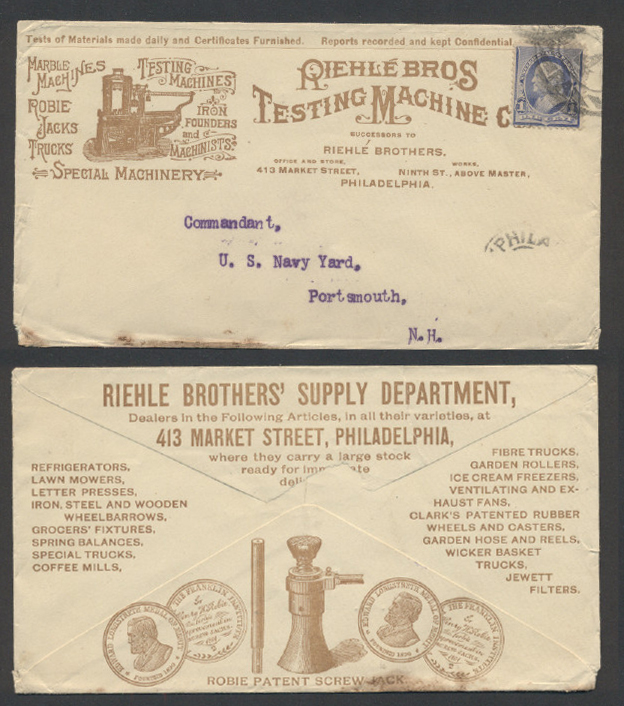 Tests of Materials made daily and Certificates Furnished. Reports recorded and kept Confidential.
MARBLE MACHINES
ROBIE JACKS
TRUCKS
TESTING MACHINES
IRON FOUNDERS and MACHINISTS.
SPECIAL MACHINERY
RIEHLÉ BROS
TESTING MACHINE C
SUCCESSORS TO
RIEHLÉ BROTHERS.
OFFICE AND STORE, WORKS,
413 MARKET STREET, NINTH ST., ABOVE MASTER,
PHILADELPHIA.
Commandant,
U. S. Navy Yard,
Portsmouth,
N.H.
PHILA
RIEHLE BROTHERS' SUPPLY DEPARTMENT,
Dealers in the Following Articles, in all their varieties, at
413 MARKET STREET, PHILADELPHIA,
where they carry a large stock
ready for imm te
deli
REFRIGERATORS,
LAWN MOWERS,
LETTER PRESSES,
IRON, STEEL AND WOODEN
WHEELBARROWS,
GROCERS' FIXTURES,
SPRING BALANCES,
SPECIAL TRUCKS,
COFFEE MILLS,
FIBRE TRUCKS.
GARDEN ROLLERS,
ICE CREAM FREEZERS,
VENTILATING AND EX-
HAUST FANS,
CLARK'S PATENTED RUBBER
WHEELS AND CASTERS,
GARDEN HOSE AND REELS,
WICKER BASKET
TRUCKS,
JEWETT
FILTERS.
EDWARD LONGSTRETH MEDAL OF MERIT
FOUNDED 1890
THE FRANKLIN INSTITUTE
EDWARD LONGSTRETH MEDAL OF MERIT
FOUNDED 1890
THE FRANKLIN INSTITUTE
ROBIE PATENT SCREW JACK.